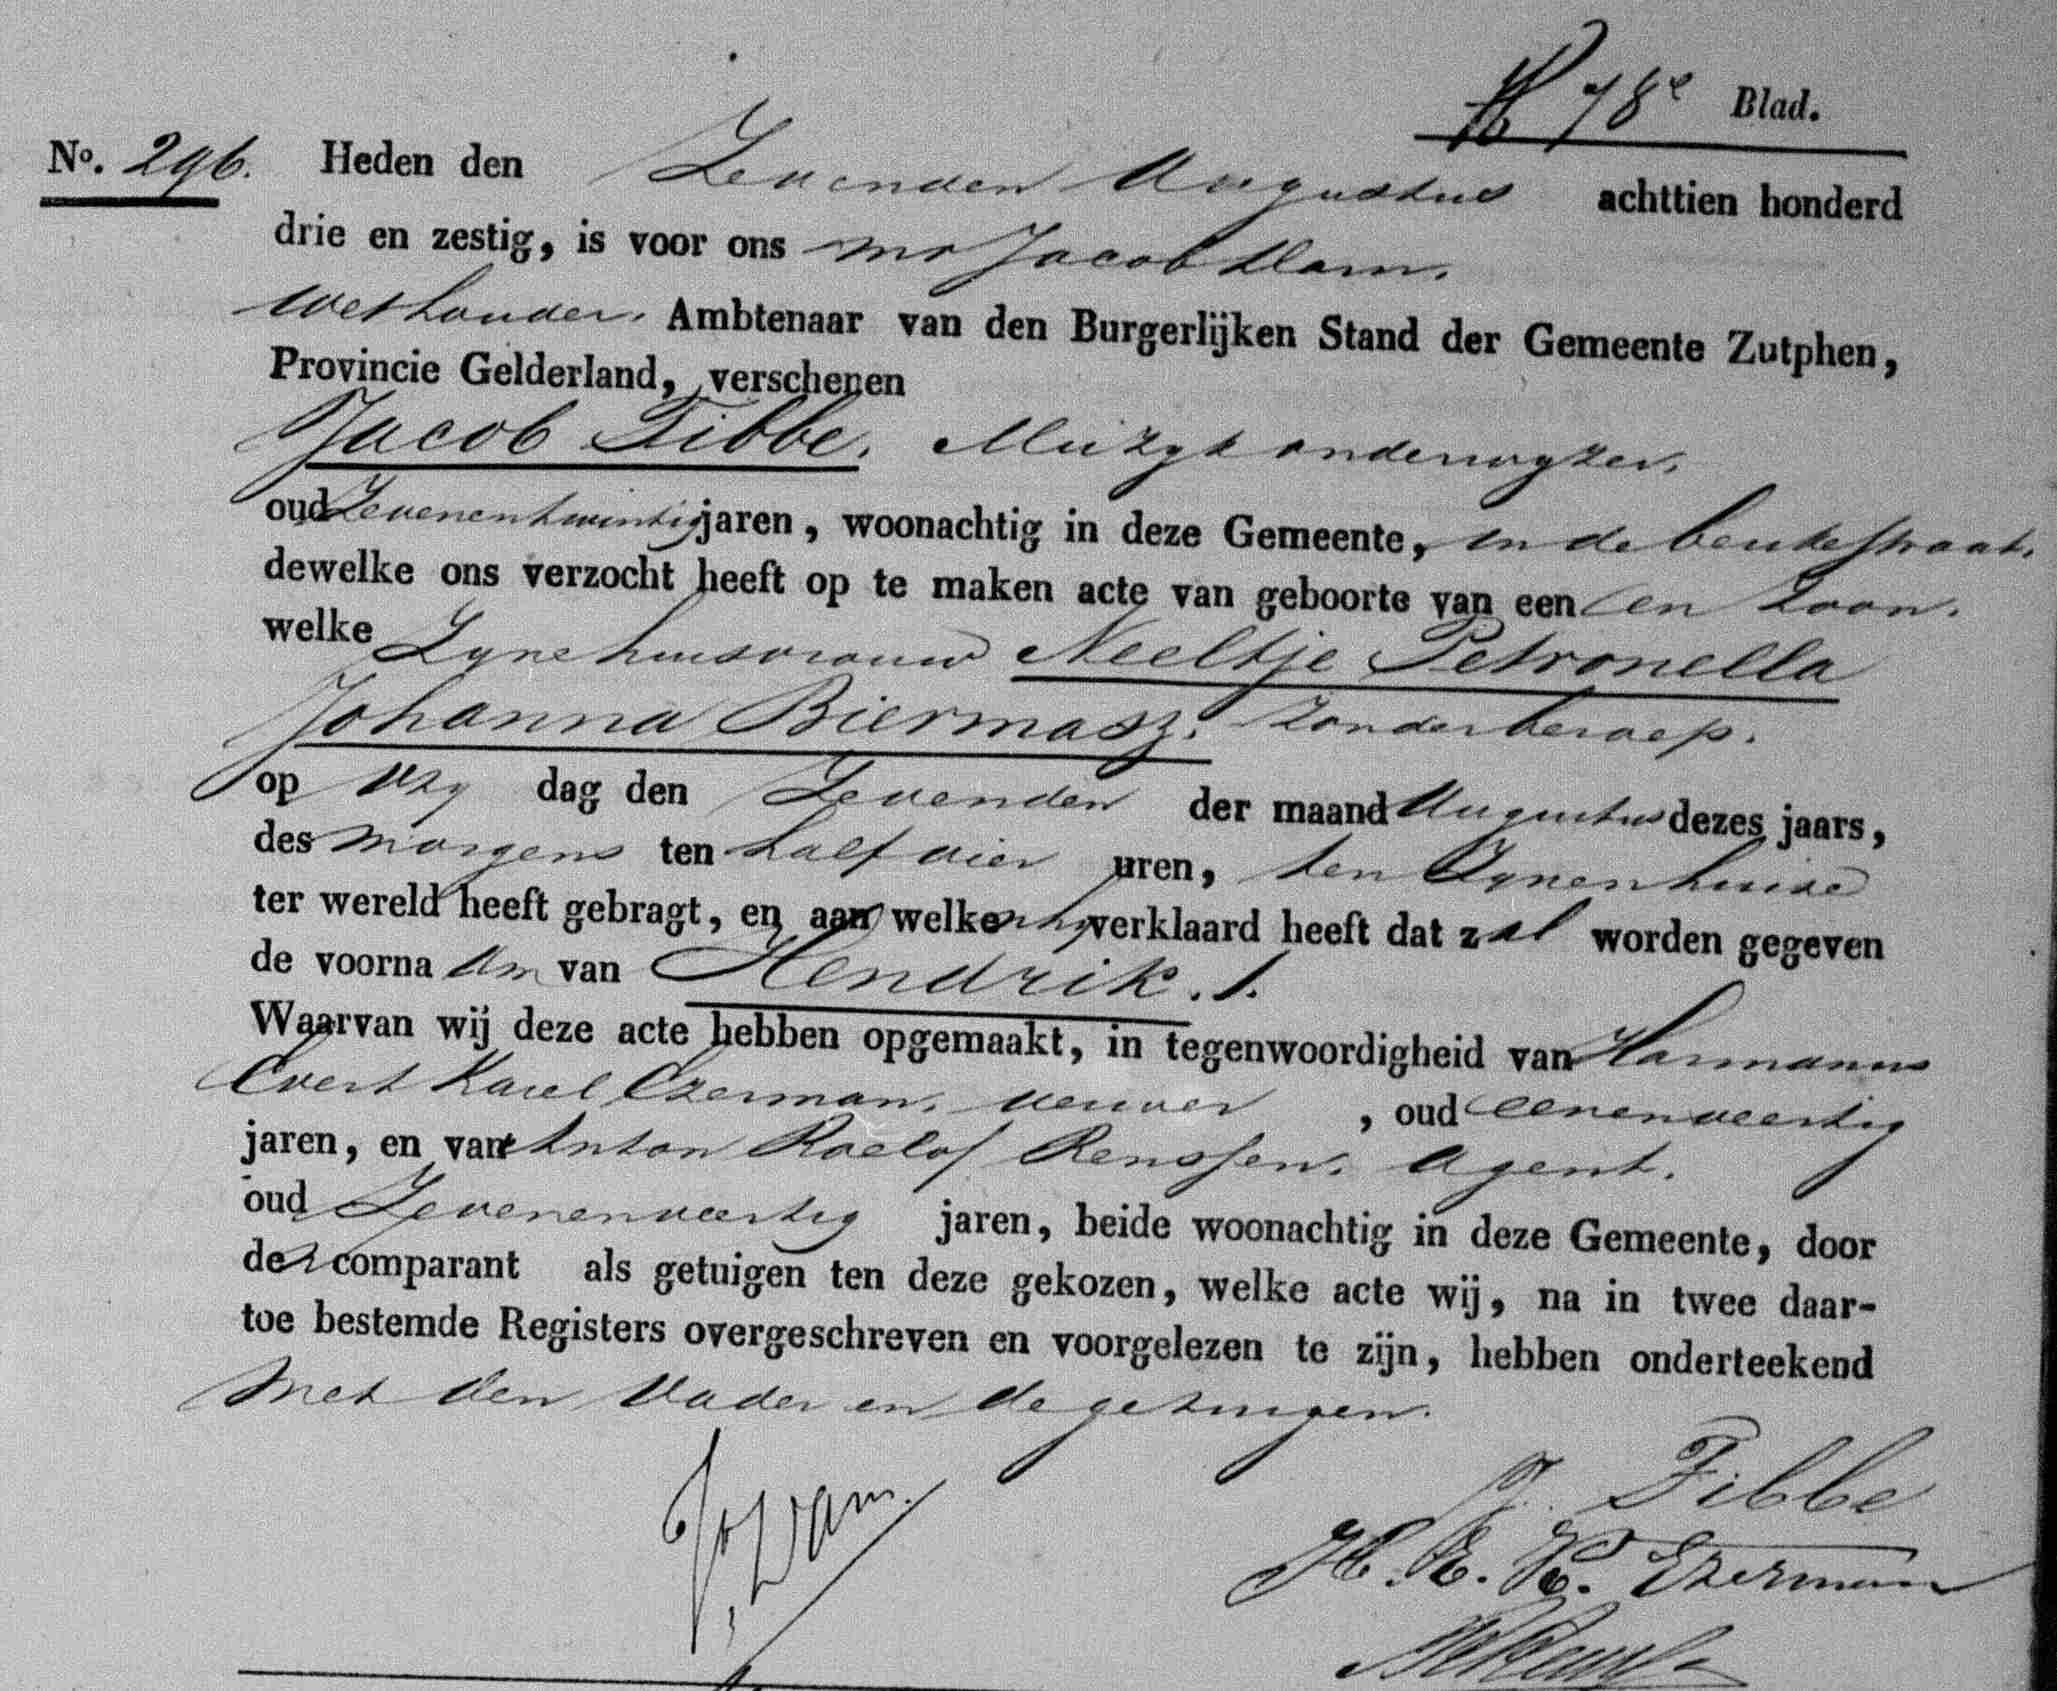 78e Blad.
No. 296. Heden den Zevenden Augustus achttien honderd
drie en zestig, is voor ons Mr Jacob Dam.
Wethouder. Ambtenaar van den Burgerlijken Stand der Gemeente Zutphen,
Provincie Gelderland, verschenen
Jacob Tibbe. Muzyk onderwyzer.
oud Zevenentwintig jaren, woonachtig in deze Gemeente, in de beukestraat.
dewelke ons verzocht heeft op te maken acte van geboorte van een en Zoon.
welke Zyne huisvrouw Neeltje Petronella
Johanna Biermasz. Zonder beroep.
op vry dag den Zevenden der maand Augustus dezes jaars,
des morgens ten half vier uren, ten Zynen huise
ter wereld heeft gebragt, en aan welken hy verklaard heeft dat zal worden gegeven
de voorna am van Hendrik. /.
Waarvan wij deze acte hebben opgemaakt, in tegenwoordigheid van Harmanus
Evert Karel Ezerman. , oud eenenveertig
jaren, en van Anton Roelof Renssen. Agent.
oud Zevenenveertig jaren, beide woonachtig in deze Gemeente, door
den comparant als getuigen ten deze gekozen, welke acte wij, na in twee daar-
toe bestemde Registers overgeschreven en voorgelezen te zijn, hebben onderteekend
Met den Vader en de getuigen.
J. Tibbe
Jb Dam.
H. E. K. Ezerman